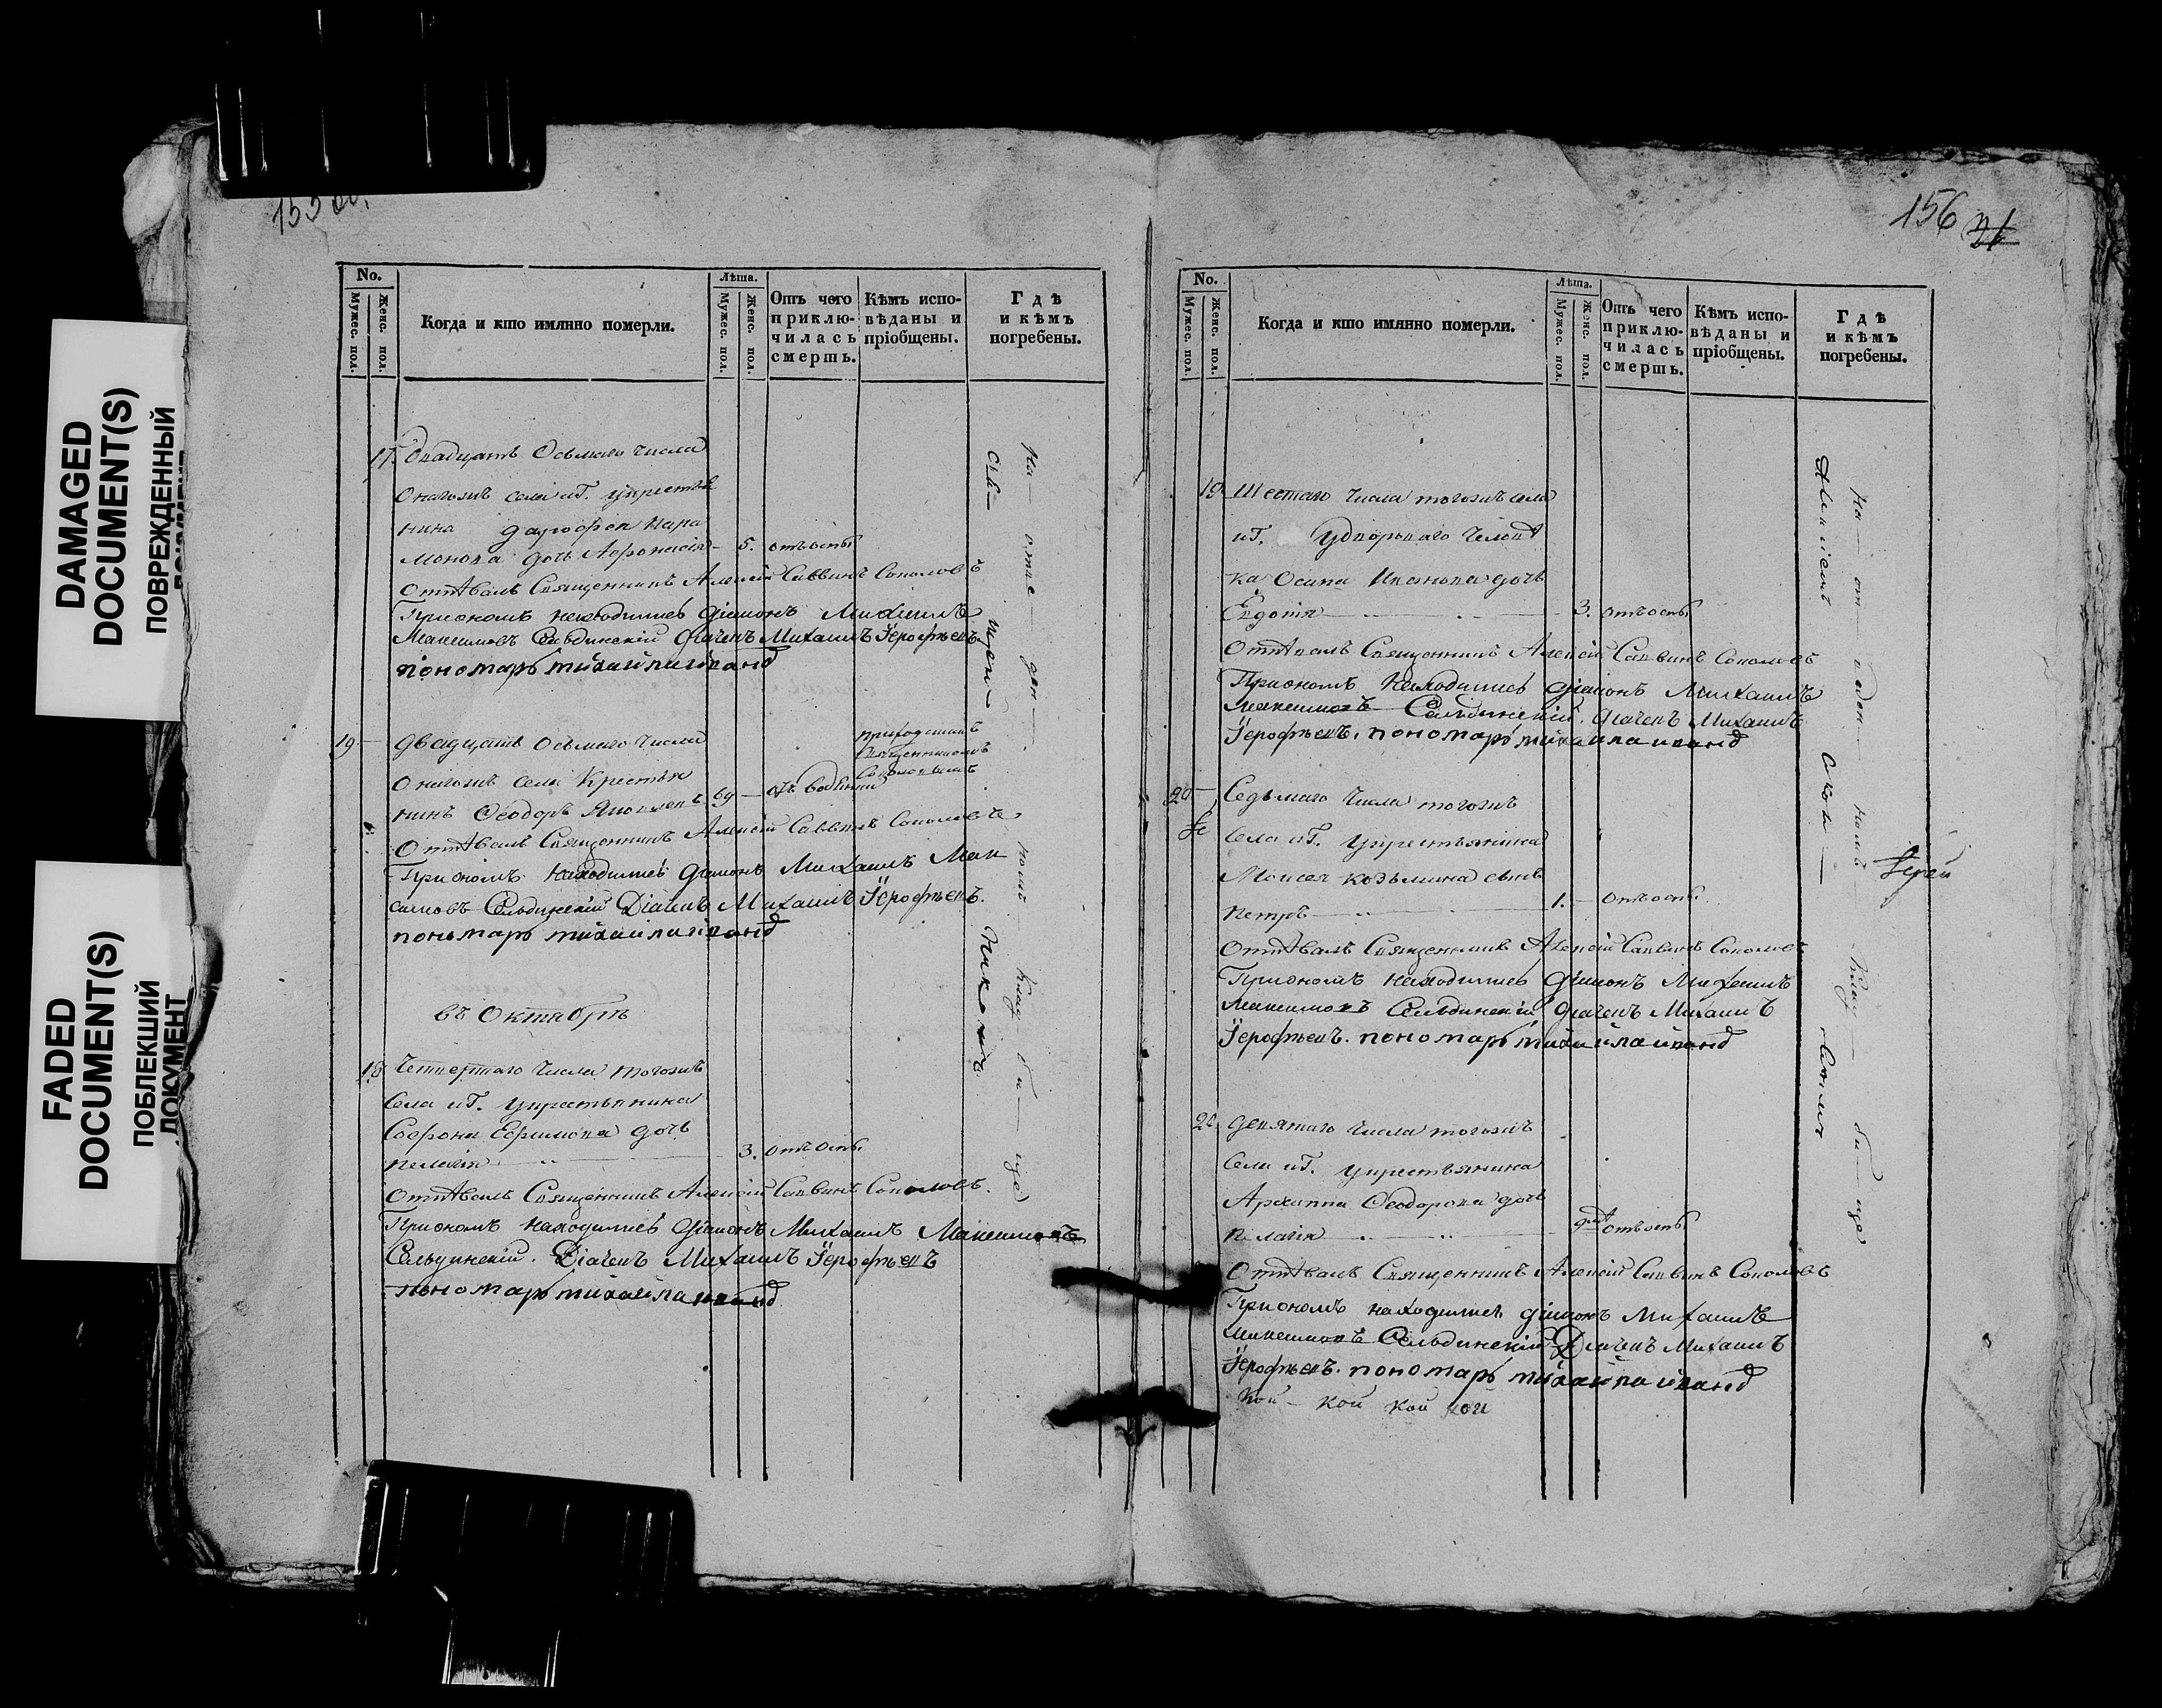 DAMAGED
DOCUMENT(S)
ПОВРЕЖДЕННЫЙ
FADED
DOCUMENT(S)
ПОБЛЕКШИЙ
ДОКУМЕНТ
No.
Мужес. пол.
Женс. пол.
Когда и кто имянно померли.
Лѣта.
Мужес. пол.
Женс. пол.
Отъ чего приклю-
чилась смерть.
Кѣмъ испо-
вѣданы и
пріобщены.
Гдѣ
и кѣмъ
погребены.
17. Двадцать Осьмаго числа
Онагожъ села иг. укрестья
нина Дарофея Пара
монова дочь Афонасія 5. отъ оспы
Отпѣвалъ Священникъ Алексій Саввинъ Соколовъ
При ономъ находились діаконъ Михаилъ
Максимовъ Сельдинскій дьячекъ Михаилъ Іерофѣевъ
пономарь михайла ивановъ
19 двадцать осьмаго числа
онагожъ села Крестья
нинъ Ѳеодоръ Яковлевъ 69 отъ водяной
приходскимъ
Священникомъ
Соколовымъ
Отпѣвалъ Священникъ Алексій Саввинъ Соколовъ
При ономъ находились діаконъ Михаилъ Мак
симовъ Сельдинскій Діачекъ Михаилъ Іерофѣевъ.
пономарь михаила ивановъ
въ Октябрѣ
18 Четвертаго числа тогожъ
села иг. укрестьянина
Софрона Ефимова дочь
пелагія 3. отъ оспы
Отпѣвалъ Священникъ Алексій Саввинъ Соколовъ.
При ономъ находились діаконъ Михаилъ Максимовъ
Сельдинскій. Діачекъ Михаилъ Іерофѣевъ
пономарь михайла ивановъ
На отве ден номъ клад би ще
156 21
No.
Мужес. пол.
Женс. пол.
Когда и кто имянно померли.
Лѣта.
Мужес. пол.
Женс. пол.
Отъ чего
приклю-
чилась
смерть.
Кѣмъ испо-
вѣданы и
пріобщены.
Гдѣ
и кѣмъ
погребены.
19 Шестаго числа тогожъ села
иг. Удворьваго челове
ка Осипа Иванова дочь
Евдокія 3. отъ оспы
Отпѣвалъ Священникъ Алексій Саввинъ Соколовъ
При ономъ находились діаконъ Михаилъ
Максимовъ Сельдинскій. діачекъ Михаилъ
Іерофѣевъ. пономарь михаила ивановъ
20 Седьмаго числа тогожъ
села иг. укрестьянина
Моисея козьмина сынъ
петръ 1. отъ оспы
Отпѣвалъ Священникъ Алексій Саввинъ Соколовъ
При ономъ находились діаконъ Михаилъ
Максимовъ Сельдинскій діачекъ Михаилъ
Іерофѣевъ. пономарь михайла ивановъ
20 девятаго числа тогожъ
села иг. укрестьянина
Архиппа Ѳеодорова дочь
пелагія отъ оспы
Отпѣвалъ Священникъ Алексій Саввинъ Соколовъ
При ономъ находились діаконъ Михаилъ
Максимовъ Сельдинскій Діячекъ Михаилъ
Іерофѣевъ. пономарь михайла ивановъ
Кой кой кой кой
Іерей